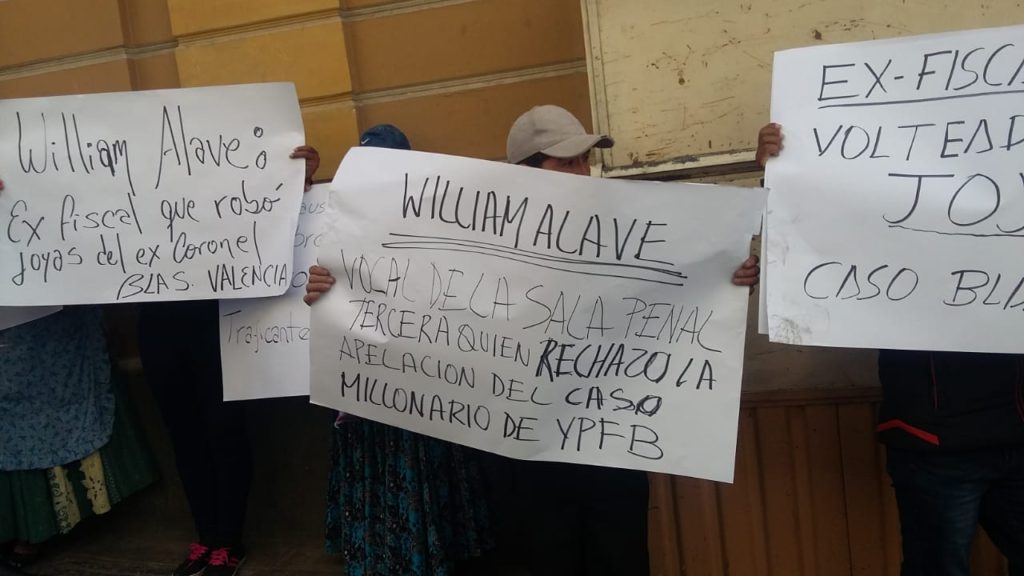 William Alave:
Ex fiscal que robó
joyas del ex Coronel
BLAS. VALENCIA
Traficante
WILLIAM ALAVE
VOCAL DE LA SALA PENAL
TERCERA QUIEN RECHAZO LA
APELACION DEL CASO
MILLONARIO DE YPFB
EX-FISCA
VOLTEAD
JOY
CASO BLA